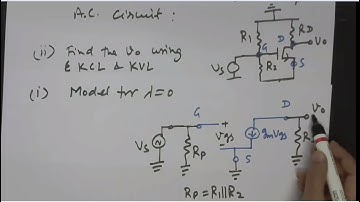 A.C. Circuit :
(ii) Find the Vo using
& KCL & KVL
(i) Model for λ=0
R1
RD
D
Vo
G
S
Vs
R2
G
D
Vo
+
Vgs
-
gmVgs
S
Vs
RP
R
RP = R1||R2